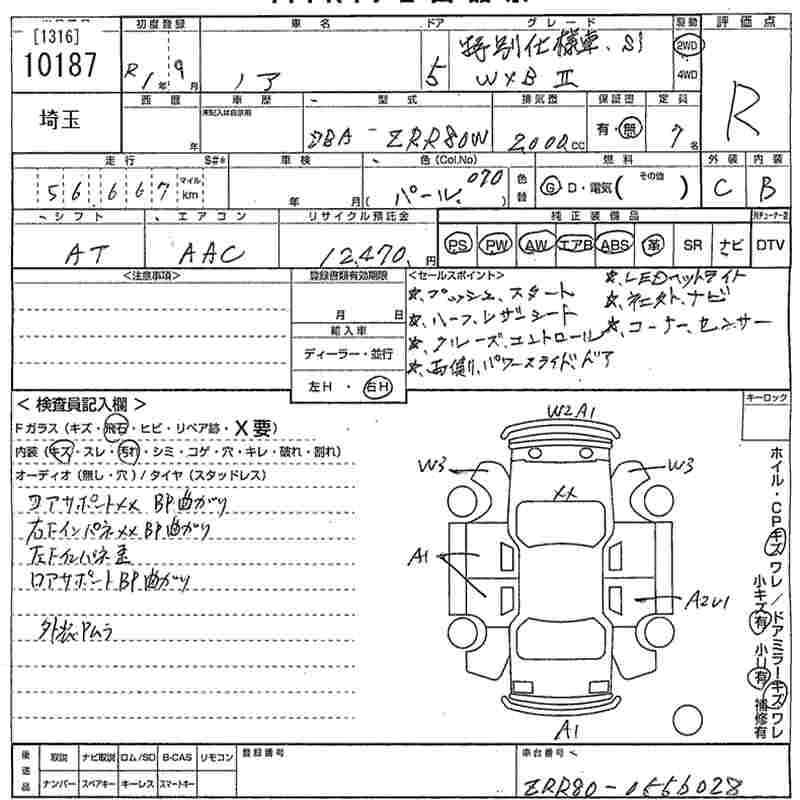 [1316]
10187
初度登録
車名
ドア
グレード
駆動
評価点
R1年9月
ノア
5
特別仕様車、Si
W×B Ⅱ
2WD
4WD
R
埼玉
西暦
年
車歴
未記入は自家用
型式
DBA-ZRR80W
排気量
2000cc
保証書
有・無
定員
7名
走行
S#*
56,667
マイル
km
車検
年 月
色(Col.No)
(パール 070)
色替
燃料
G D・電気( その他 )
外装
C
内装
B
シフト
AT
エアコン
AAC
リサイクル預託金
12,470円
純正装備品
PS PW AW エアB ABS 革 SR ナビ DTV
<注意事項>
登録書類有効期限
月 日
輸入車
ディーラー・並行
左H・右H
<セールスポイント>
☆プッシュスタート
☆ハーフレザーシート
☆クルーズコントロール
☆両側パワースライドドア
☆LEDヘットライト
☆コーナーセンサー
<検査員記入欄>
Fガラス(キズ・飛石・ヒビ・リペア跡・X要)
内装(キズ・スレ・汚れ・シミ・コゲ・穴・キレ・破れ・割れ)
オーディオ(無し・穴)/タイヤ(スタッドレス)
コアサポートXX BP曲がり
右FインパネXX BP曲がり
ロアサポートBP曲がり
W2A1
W3
W3
XX
A1
A2U1
A1
キーロック
ホイル・CPキズ ワレ/ドアミラーキズ ワレ
小キズ有 小U有 補修有
後送品
取説 ナビ取説 ロム/SD B-CAS リモコン
ナンバー スペアキー キーレス スマートキー
登録番号
車台番号
ZRR80-0556028